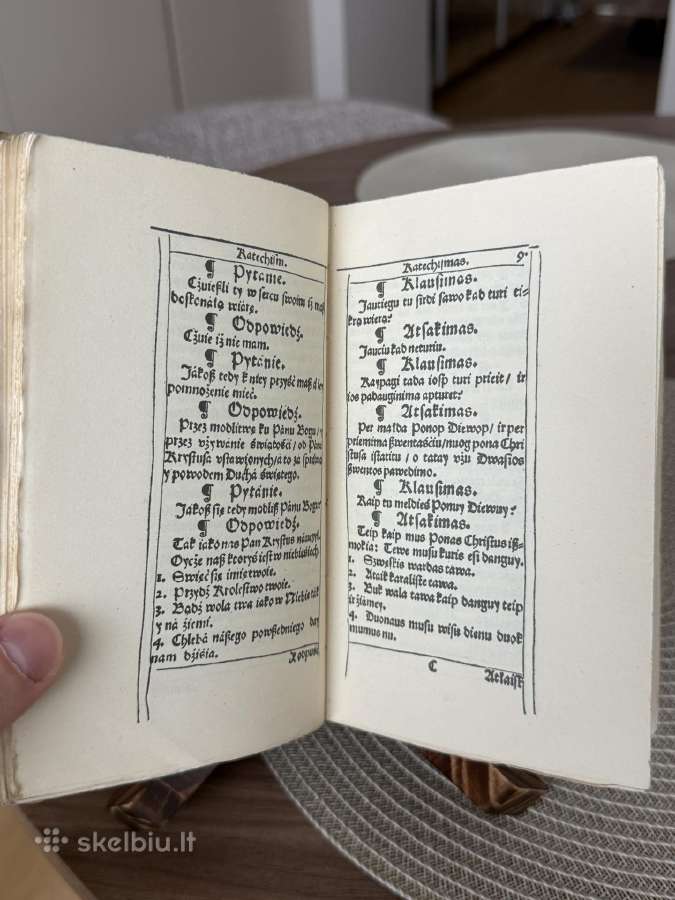 Katechism.
¶ Pytanie.
Cżuieſzli ty w ſercu ſwoim iż maß
doskonałą wiárę.
¶ Odpowiedź.
Cżuie iż nie mam.
¶ Pytánie.
Jákoß tedy k niey przyść maß
pomnożenie mieć.
¶ Odpowiedź.
Przez modlitwę ku Pánu Bogu/ y
przez vżywanie świątości/ od Páná
Krystusa vstawionych/ a to za
y powodem Duchá świętego.
¶ Pytánie.
Jákoß się tedy modliß Pánu Bogu?
¶ Odpowiedź.
Ták iáko nas Pan Krystus náucżył
Oycże naß ktoryś ieſt w niebiesiech
1. Święć się imię twoie.
2. Przydź Krolestwo twoie.
3. Bądź wola twa iáko w Niebie tak
y ná źiemi.
4. Chlebá náßego powßedniego day
nam dźiśia.
Katechismas. 9.
¶ Klausimas.
Jautiegu tu ſirdi ſawo kad turi tik-
rą wierą?
¶ Atſakimas.
Jauciu kad neturiu.
¶ Klauſimas.
Kaypagi tada ioſp turi prieit/ ir
ios padauginima apturet?
¶ Atſakimas.
Per malda Ponop Diewop/ ir per
priemima ßwentaſciu/ nuog pona Chri
ſtuſa iſtatitu/ o tatay vżu Dwaſios
ßwentos pawedimo.
¶ Klauſimas.
Kaip tu meldies Ponuy Diewuy?
¶ Atſakimas.
Teip kaip mus Ponas Chriſtus iß-
mokia: Tewe muſu kuris eſi danguy.
1. Szweskis wardas tawa.
2. Ataik karaliſte tawa.
3. Buk wala tawa kaip danguy teip
ir żiamey.
4. Duonaus muſu wiſu dienu duok
mumus nu.
C Atlaiſk
skelbiu.lt